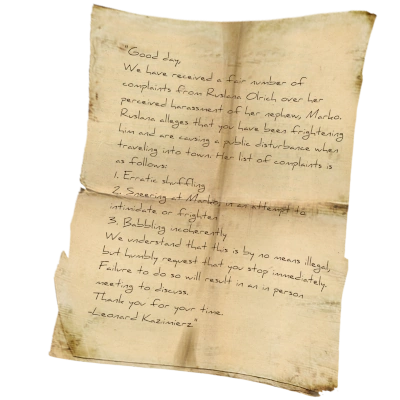 "Good day,
We have received a fair number of
complaints from Ruslana Olrich over her
perceived harassment of her nephew, Marko.
Ruslana alleges that you have been frightening
him and are causing a public disturbance when
traveling into town. Her list of complaints is
as follows:
1. Erratic shuffling
2. Sneering at Marko in an attempt to
intimidate or frighten
3. Babbling incoherently
We understand that this is by no means illegal,
but humbly request that you stop immediately.
Failure to do so will result in an in person
meeting to discuss.
Thank you for your time.
-Leonard Kazimierz"